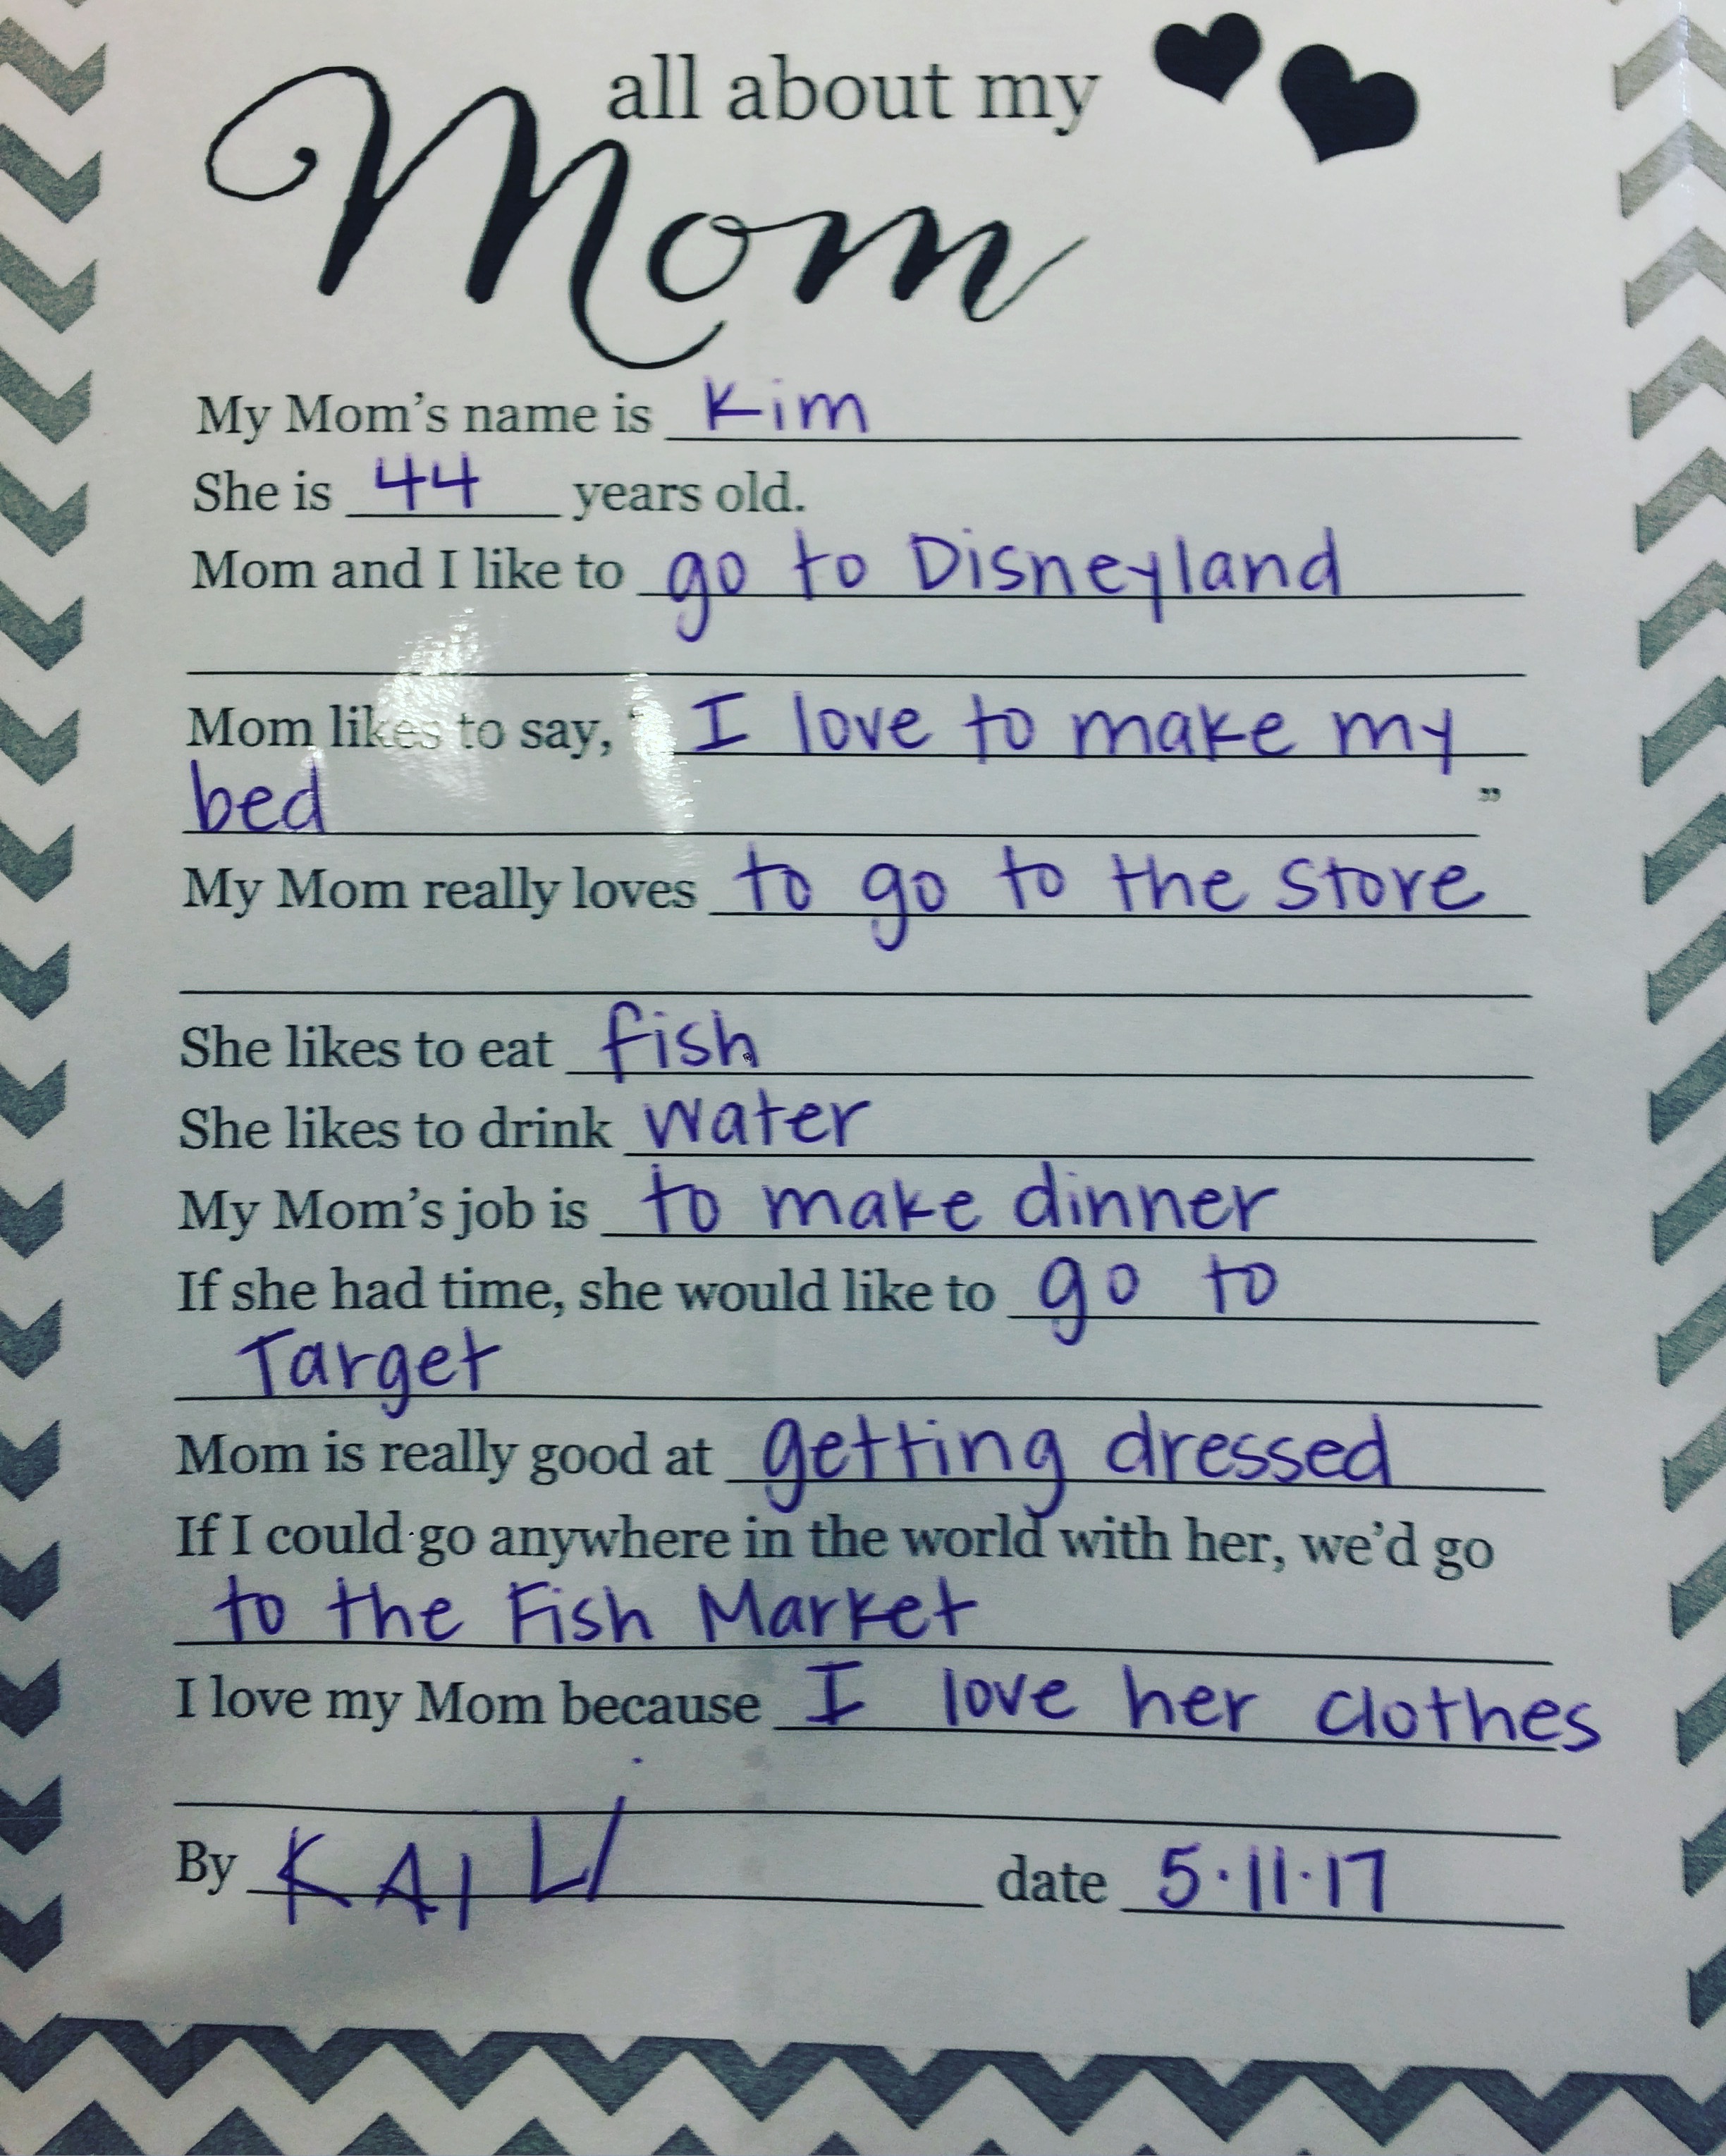 all about my
Mom
My Mom's name is Kim
She is 44 years old.
Mom and I like to go to Disneyland
Mom likes to say, " I love to make my
bed "
My Mom really loves to go to the store
She likes to eat fish
She likes to drink water
My Mom's job is to make dinner
If she had time, she would like to go to
Target
Mom is really good at getting dressed
If I could go anywhere in the world with her, we'd go
to the Fish Market
I love my Mom because I love her clothes
By KAILI date 5.11.17